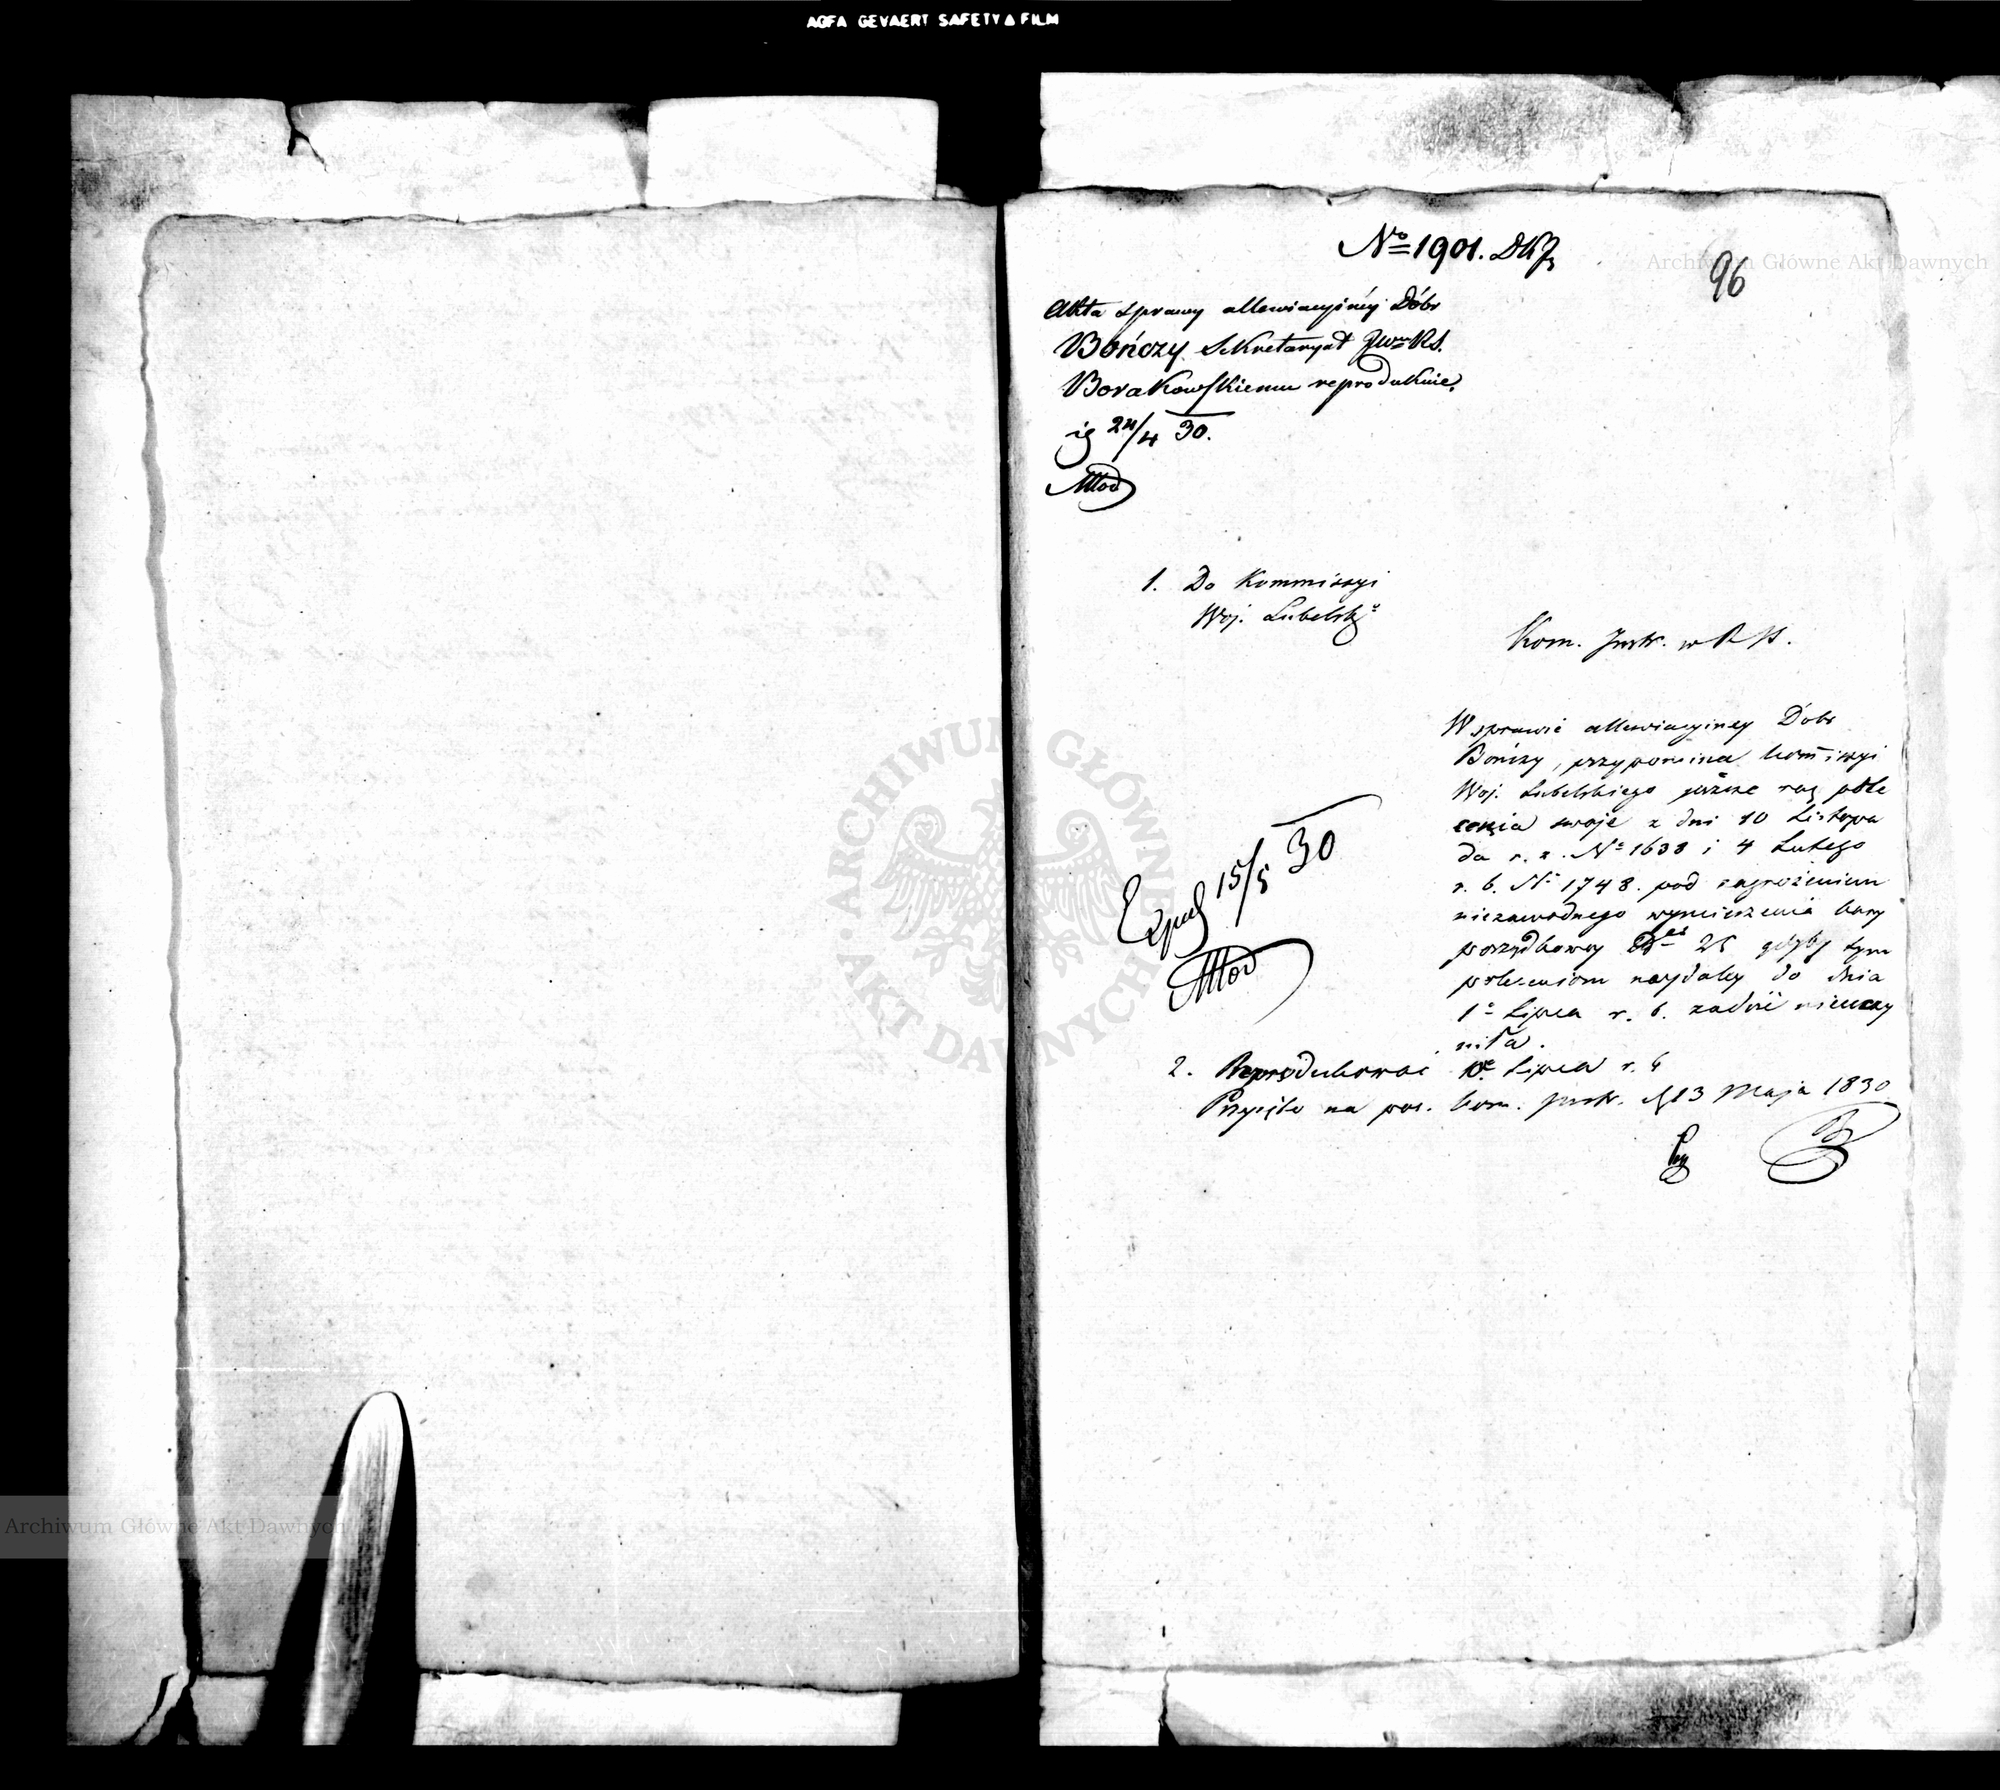 AGFA GEVAERT SAFETY FILM
№ 1901.
96
Akta sprawy allewiacyiney Dóbr
Bończy Sekretaryat
Borakowskiemu reprodukuie,
24/4 30.
1. Do Kommissyi
Woj. Lubelskgo
Kom. Instr. w R. St.
W sprawie allewiacyiney Dobr
Bończy, przypomina kommissyi
Woj. Lubelskiego jeszcze raz pole
cenia swoje z dni 10 Listopa
da r. z. № 1638 i 4 Lutego
r. b. № 1748. pod zagrożeniem
niezawodnego wymierzenia kary
porządkowey 25 gdyby tym
poleceniom naydaley do dnia
1o Lipca r. b. zadość nieuczy
niła.
Exped 15/5 30
2. Reprodukować 10 Lipca r. b
Przyięto na pos. kom. Instr. d. 13 Maja 1830
ARCHIWUM GŁÓWNE AKT DAWNYCH
Archiwum Główne Akt Dawnych
Archiwum Główne Akt Dawnych